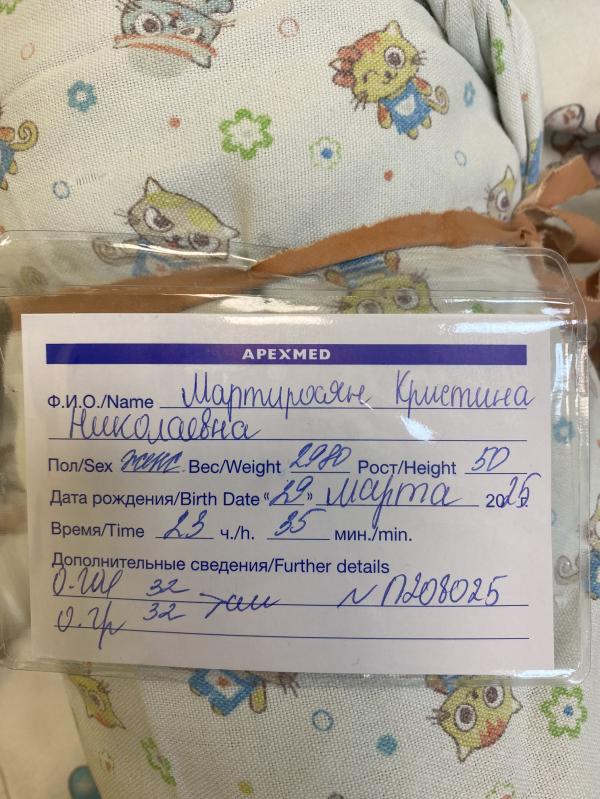 APEXMED
Ф.И.О./Name Мартиросян Кристина
Николаевна
Пол/Sex жен. Вес/Weight 2980 Рост/Height 50
Дата рождения/Birth Date “29” марта 2025г.
Время/Time 23 ч./h. 35 мин./min.
Дополнительные сведения/Further details
О.гол 32 см N П208025
О.гр 32